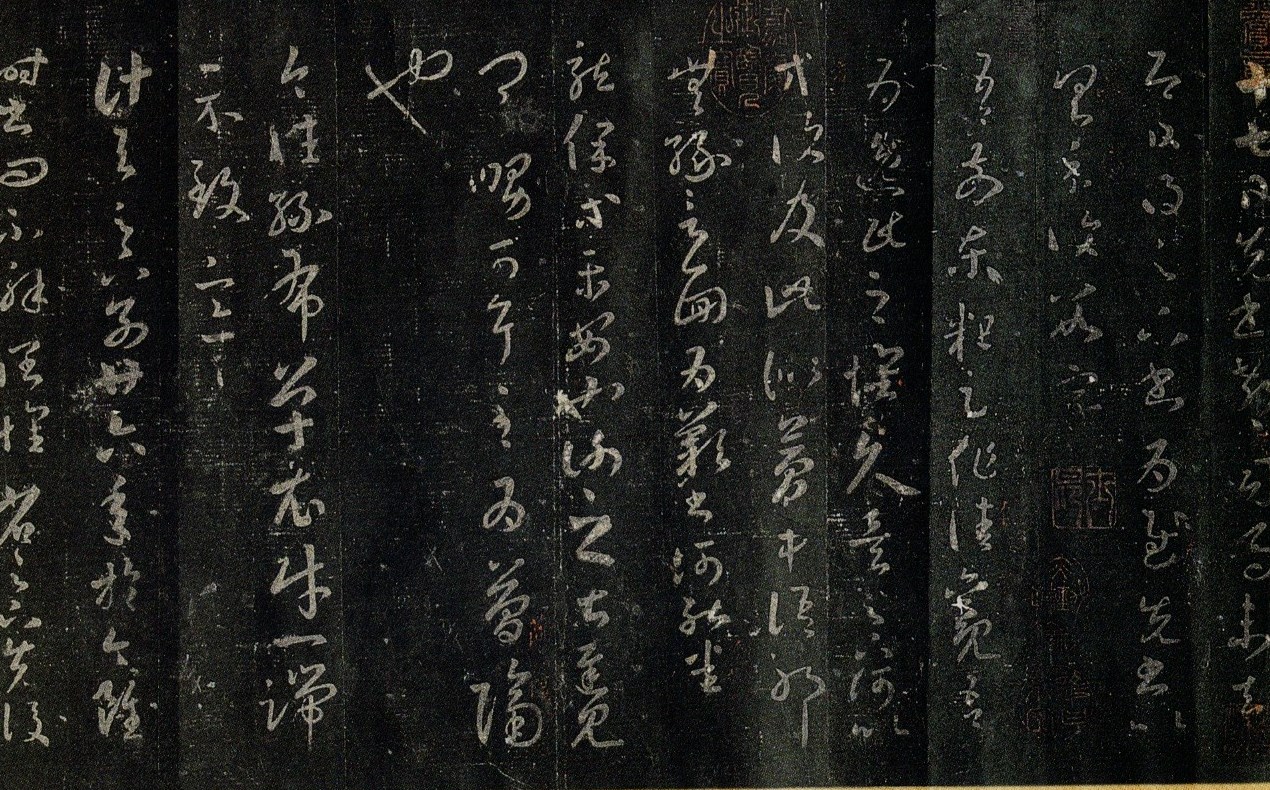 十七日先書郗司馬未去
即日得足下書為慰先書以
具示復數字
吾前東粗足作佳觀吾
為逸民之懷久矣足下何以
方復及此似夢中語耶
無緣言面為歎書何能悉
龍保等平安也謝之甚遲見
卿舅可耳至為簡隔
也
今往絲布單衣財一端
示致意
計與足下別廿六年於今雖
時書問不解闊懷省足下先後